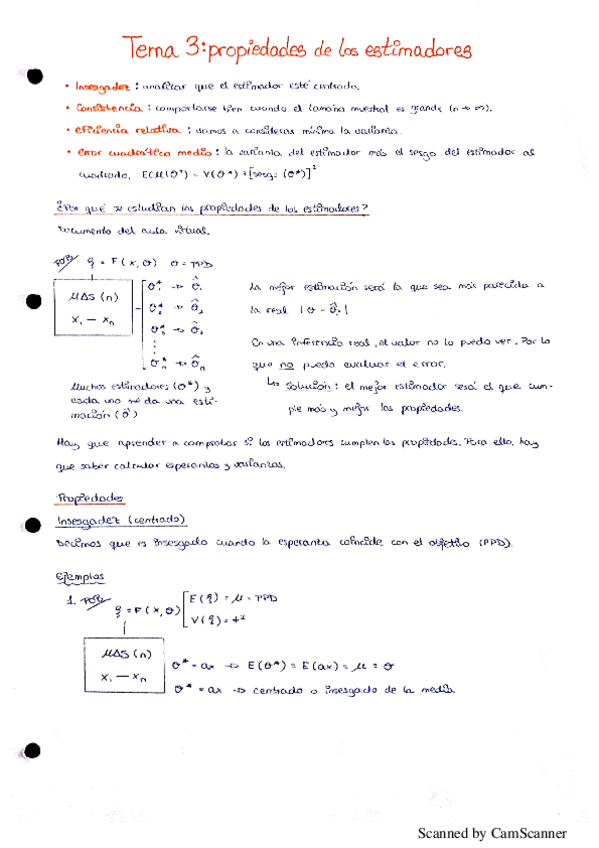 Tema 3: propiedades de los estimadores
• Insesgadez: analizar que el estimador esté centrado.
• Consistencia: comportarse bien cuando el tamaño muestral es grande (n → ∞).
• eficiencia relativa: vamos a considerar mínima la varianza.
• error cuadrático medio: la varianza del estimador más el sesgo del estimador al
cuadrado, ECM(θ*) = V(θ*) + [sesg. (θ*)]²
¿Por qué se estudian las propiedades de los estimadores?
Documento del aula virtual.
POB/ ξ = F(x, θ) θ = PPD
MAS (n)
x₁ — xₙ
θ*₁ → θ̂₁
θ*₂ → θ̂₂
θ*₃ → θ̂₃
⋮
θ*ₙ → θ̂ₙ
La mejor estimación será la que sea más parecida a
la real |θ - θ̂ᵢ|
En una inferencia real, el valor no lo puedo ver. Por lo
que no puedo evaluar el error.
↳ Solución: el mejor estimador será el que cum-
ple más y mejor las propiedades.
Muchos estimadores (θ*) y
cada uno me da una esti-
mación (θ̂)
Hay que aprender a comprobar si los estimadores cumplen las propiedades. Para ello, hay
que saber calcular esperanzas y varianzas.
Propiedades
Insesgadez (centrado)
Decimos que es insesgado cuando la esperanza coincide con el objetivo (PPD).
Ejemplos
1. POB/ ξ = F(x, θ)
E(ξ) = μ = PPD
V(ξ) = σ²
MAS (n)
x₁ — xₙ
θ* = ax → E(θ*) = E(ax) = μ = θ
θ* = ax → centrado o insesgado de la media
Scanned by CamScanner